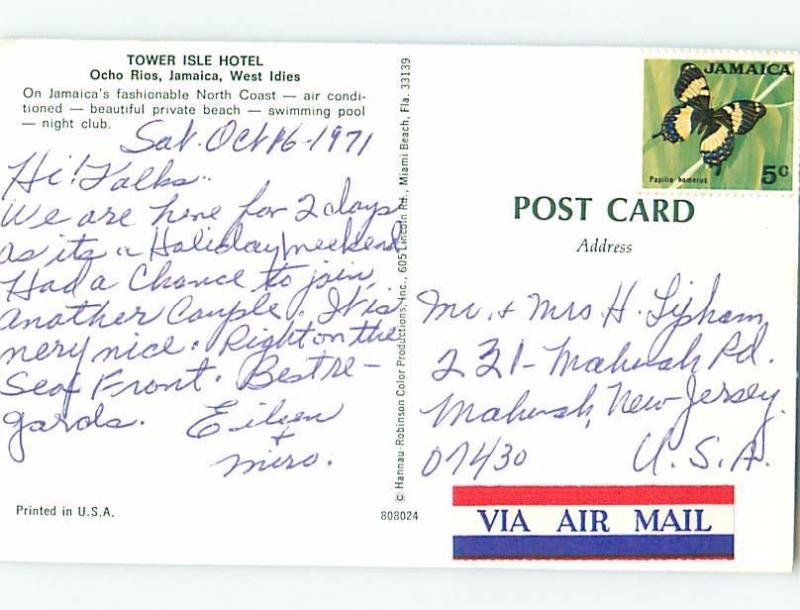 TOWER ISLE HOTEL
Ocho Rios, Jamaica, West Idies
On Jamaica's fashionable North Coast — air condi-
tioned — beautiful private beach — swimming pool
— night club.
Sat. Oct 16-1971
Hi! Folks.
We are here for 2 days
as its a Holiday weekend
Had a Chance to join
another Couple. It is
very nice. Right on the
Sea Front. Best re-
gards. Eileen
+
miro.
Printed in U.S.A.
808024
© Hannau-Robinson Color Productions, Inc., 605 Lincoln Rd., Miami Beach, Fla. 33139
JAMAICA
Papilio homerus
5c
POST CARD
Address
Mr. + Mrs H. Lipham
221- Mahwah Rd.
Mahwah, New Jersey.
07430
U.S.A.
VIA AIR MAIL